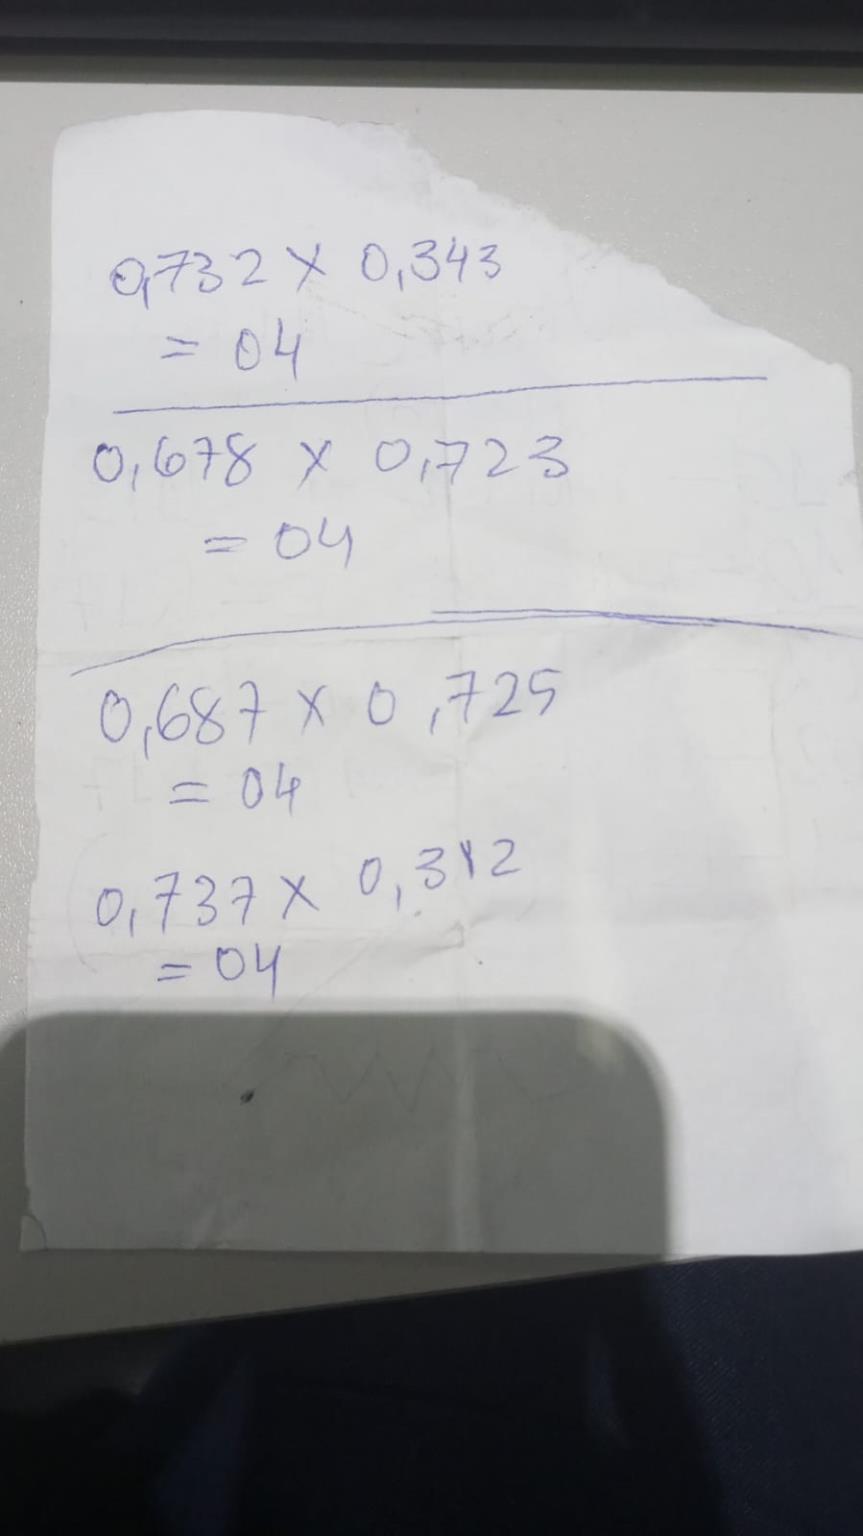 0,732 x 0,343
= 04
0,678 x 0,723
= 04
0,687 x 0,725
= 04
0,737 x 0,312
= 04